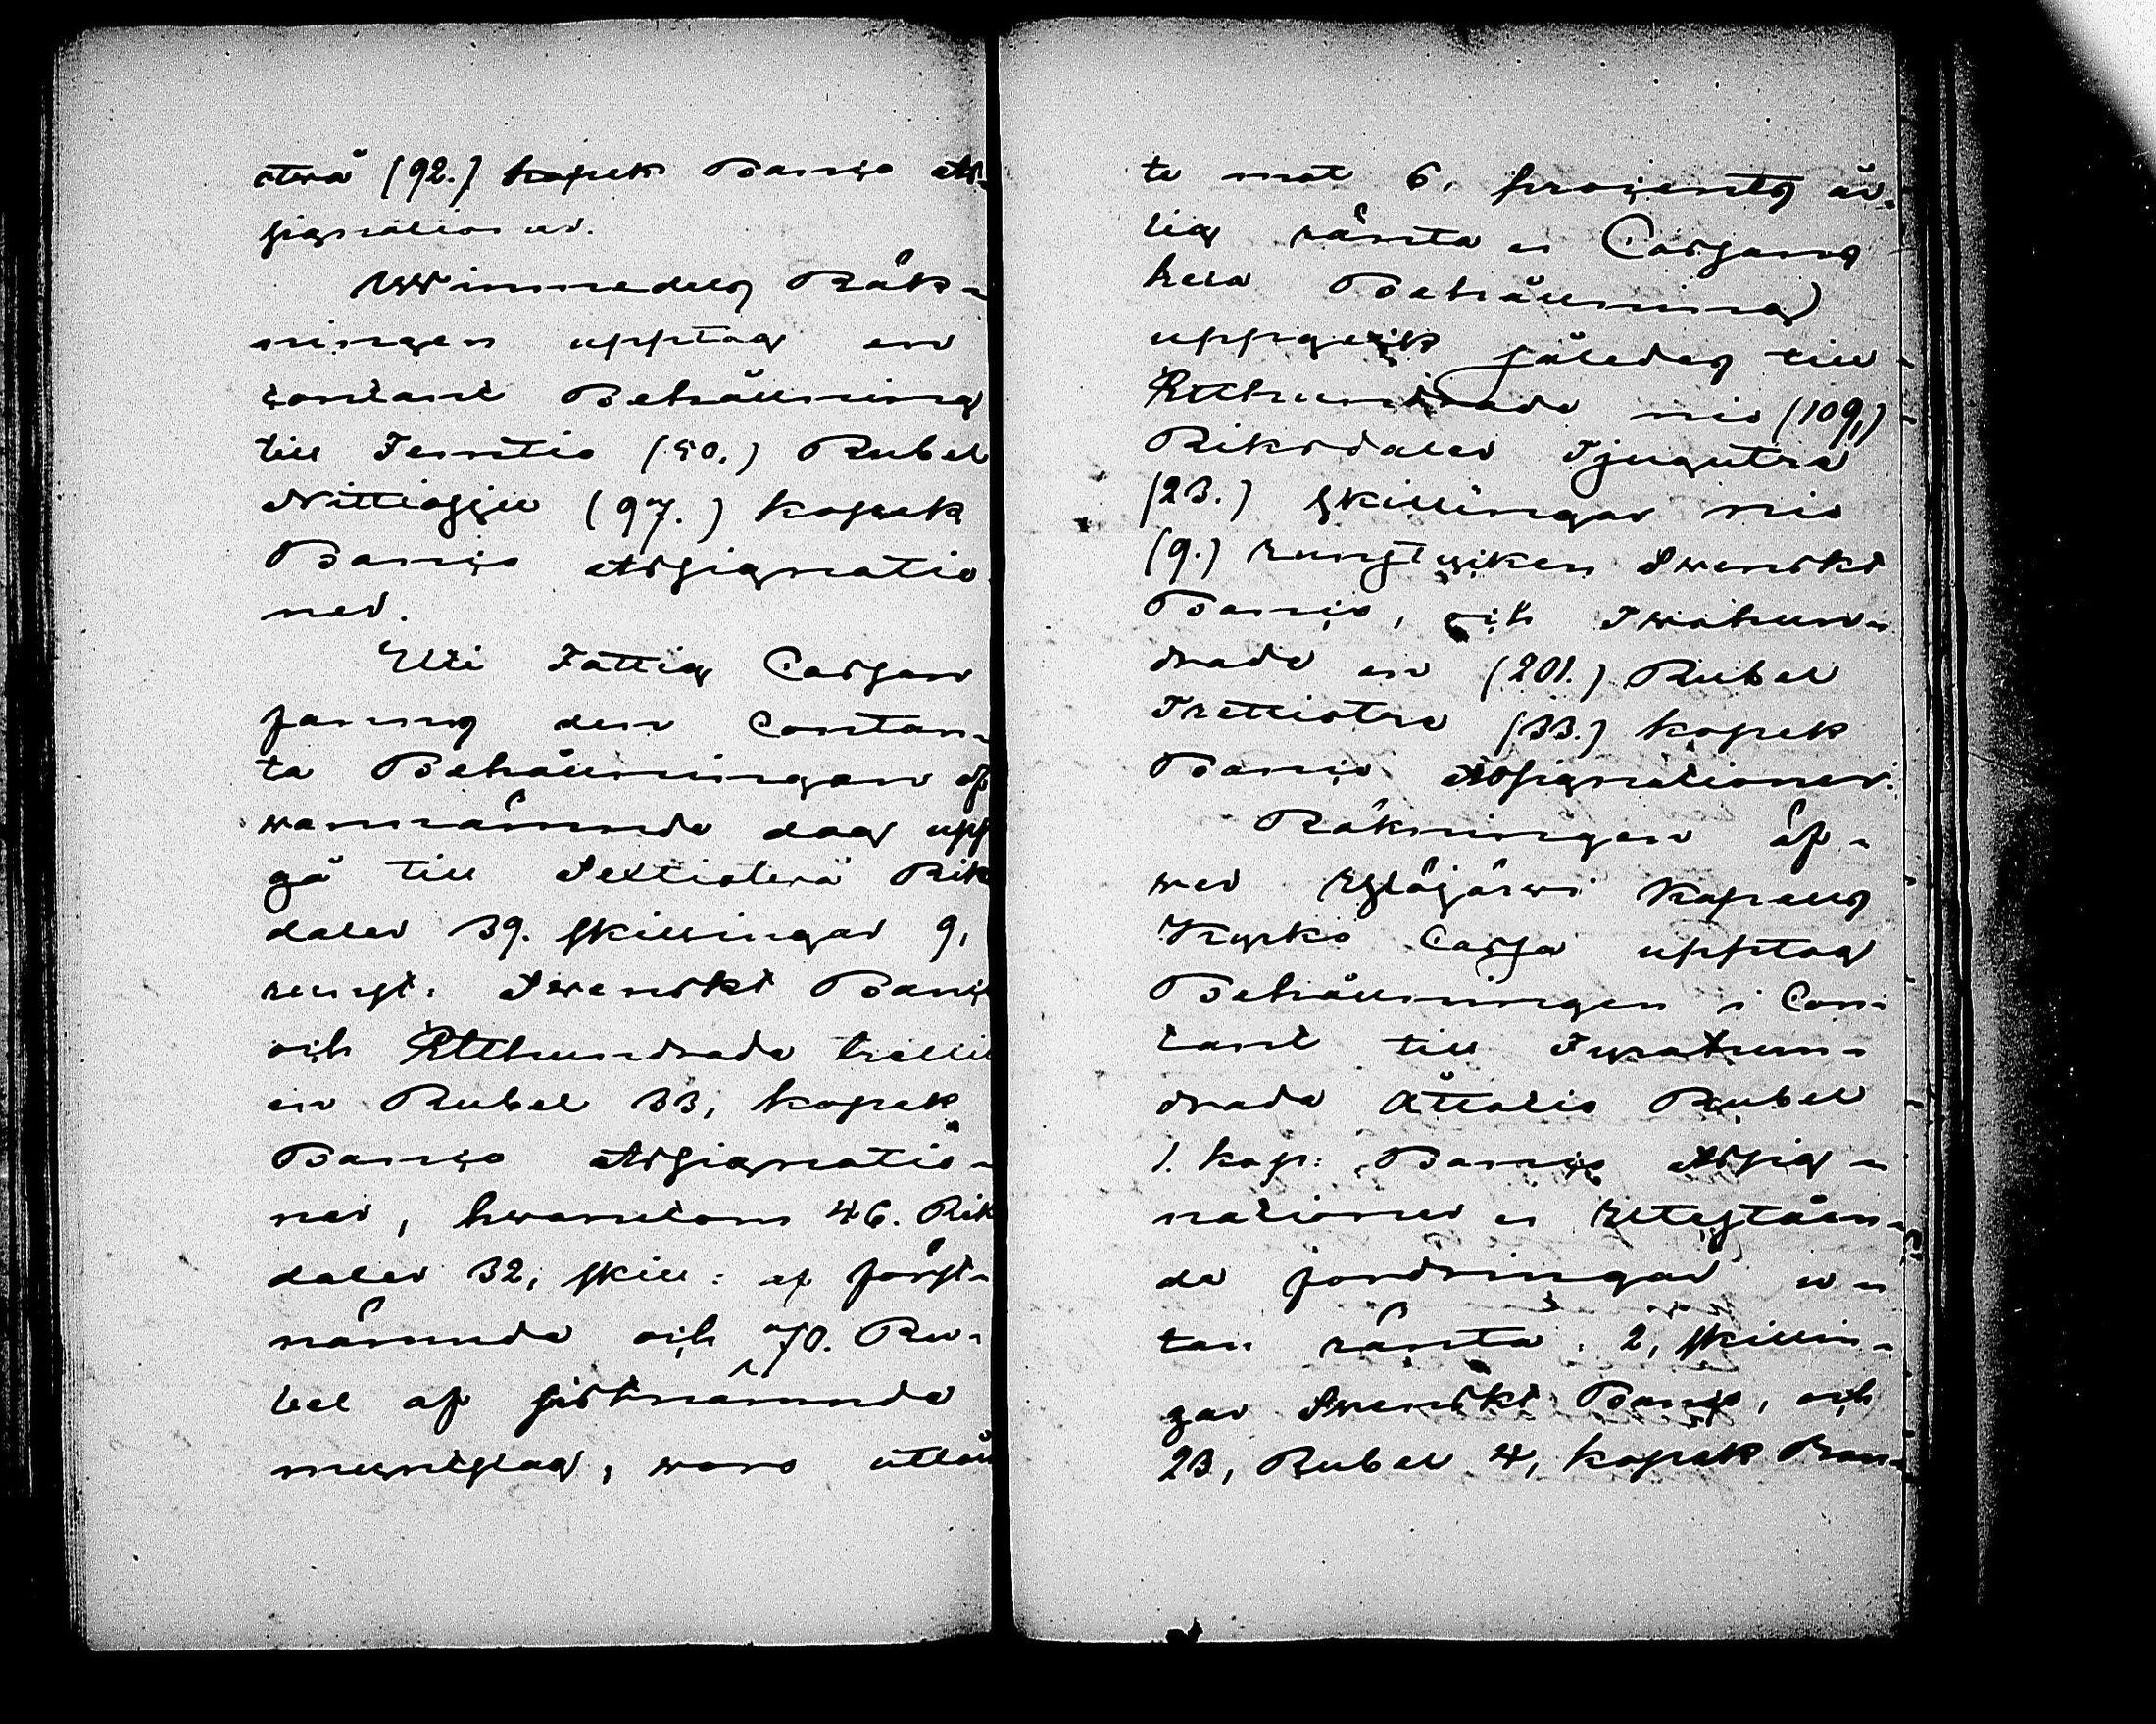 otvå (92.) kopek Banco As-
signationer.
Winmedels Räk-
ningen upptog en
contant Behållning
till Femtio (50.) Rubel
Nittiosju (97.) kopek
Banco Assignatio
ner.
Uti Fattig Cassan
fanns den Contan-
ta Behållningen of
wannämnde dag upp
gå till Sextiotvå Rik
daler 39. skillingar 9,
rungst. Swenskt Banco
och Etthundrade trettio
en Rubel 33, kopek
Banco Assignatio-
ner, hwarutom 46. Rik
daler 32, skill: af först-
nämnde och 70. Ru-
bel af sistnämnde
myntslag, woro utlån
te mot 6. procents år-
lig ränta. Cassans
hela Behållning
uppgick således till
Etthundrade nio (109,)
Riksdaler Tjugutre
(23.) skillingar nio
(9.) rungstycken Swenskt
Banco, och Twåhun-
drade en (201.) Rubel
Trettiotre (33.) kopek
Banco Assignationer.
Räkningen öf-
wer Ylöjärwi Kapells
Kyrko Cassa upptog
Behållningen i Con-
tant till Twåhun-
drade Åttatio Rubel
1. kop: Banco Assig-
nationer Utestäen-
de fordringar u-
tan ränta: 2, skillin-
gar Swenskt Banco, och
23, Rubel 4, kopek Ban-